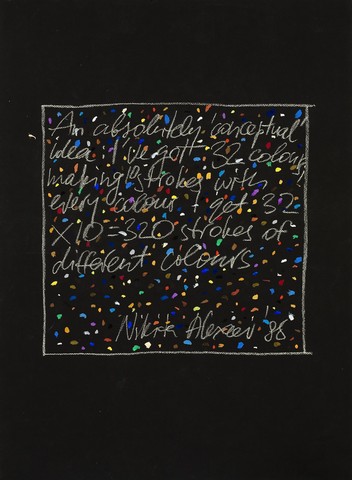 An absolutely conceptual
idea: I've got 32 colours,
making 10 strokes with
every colour I got 32
×10=320 strokes of
different colours.
Nikita Alexeev 88